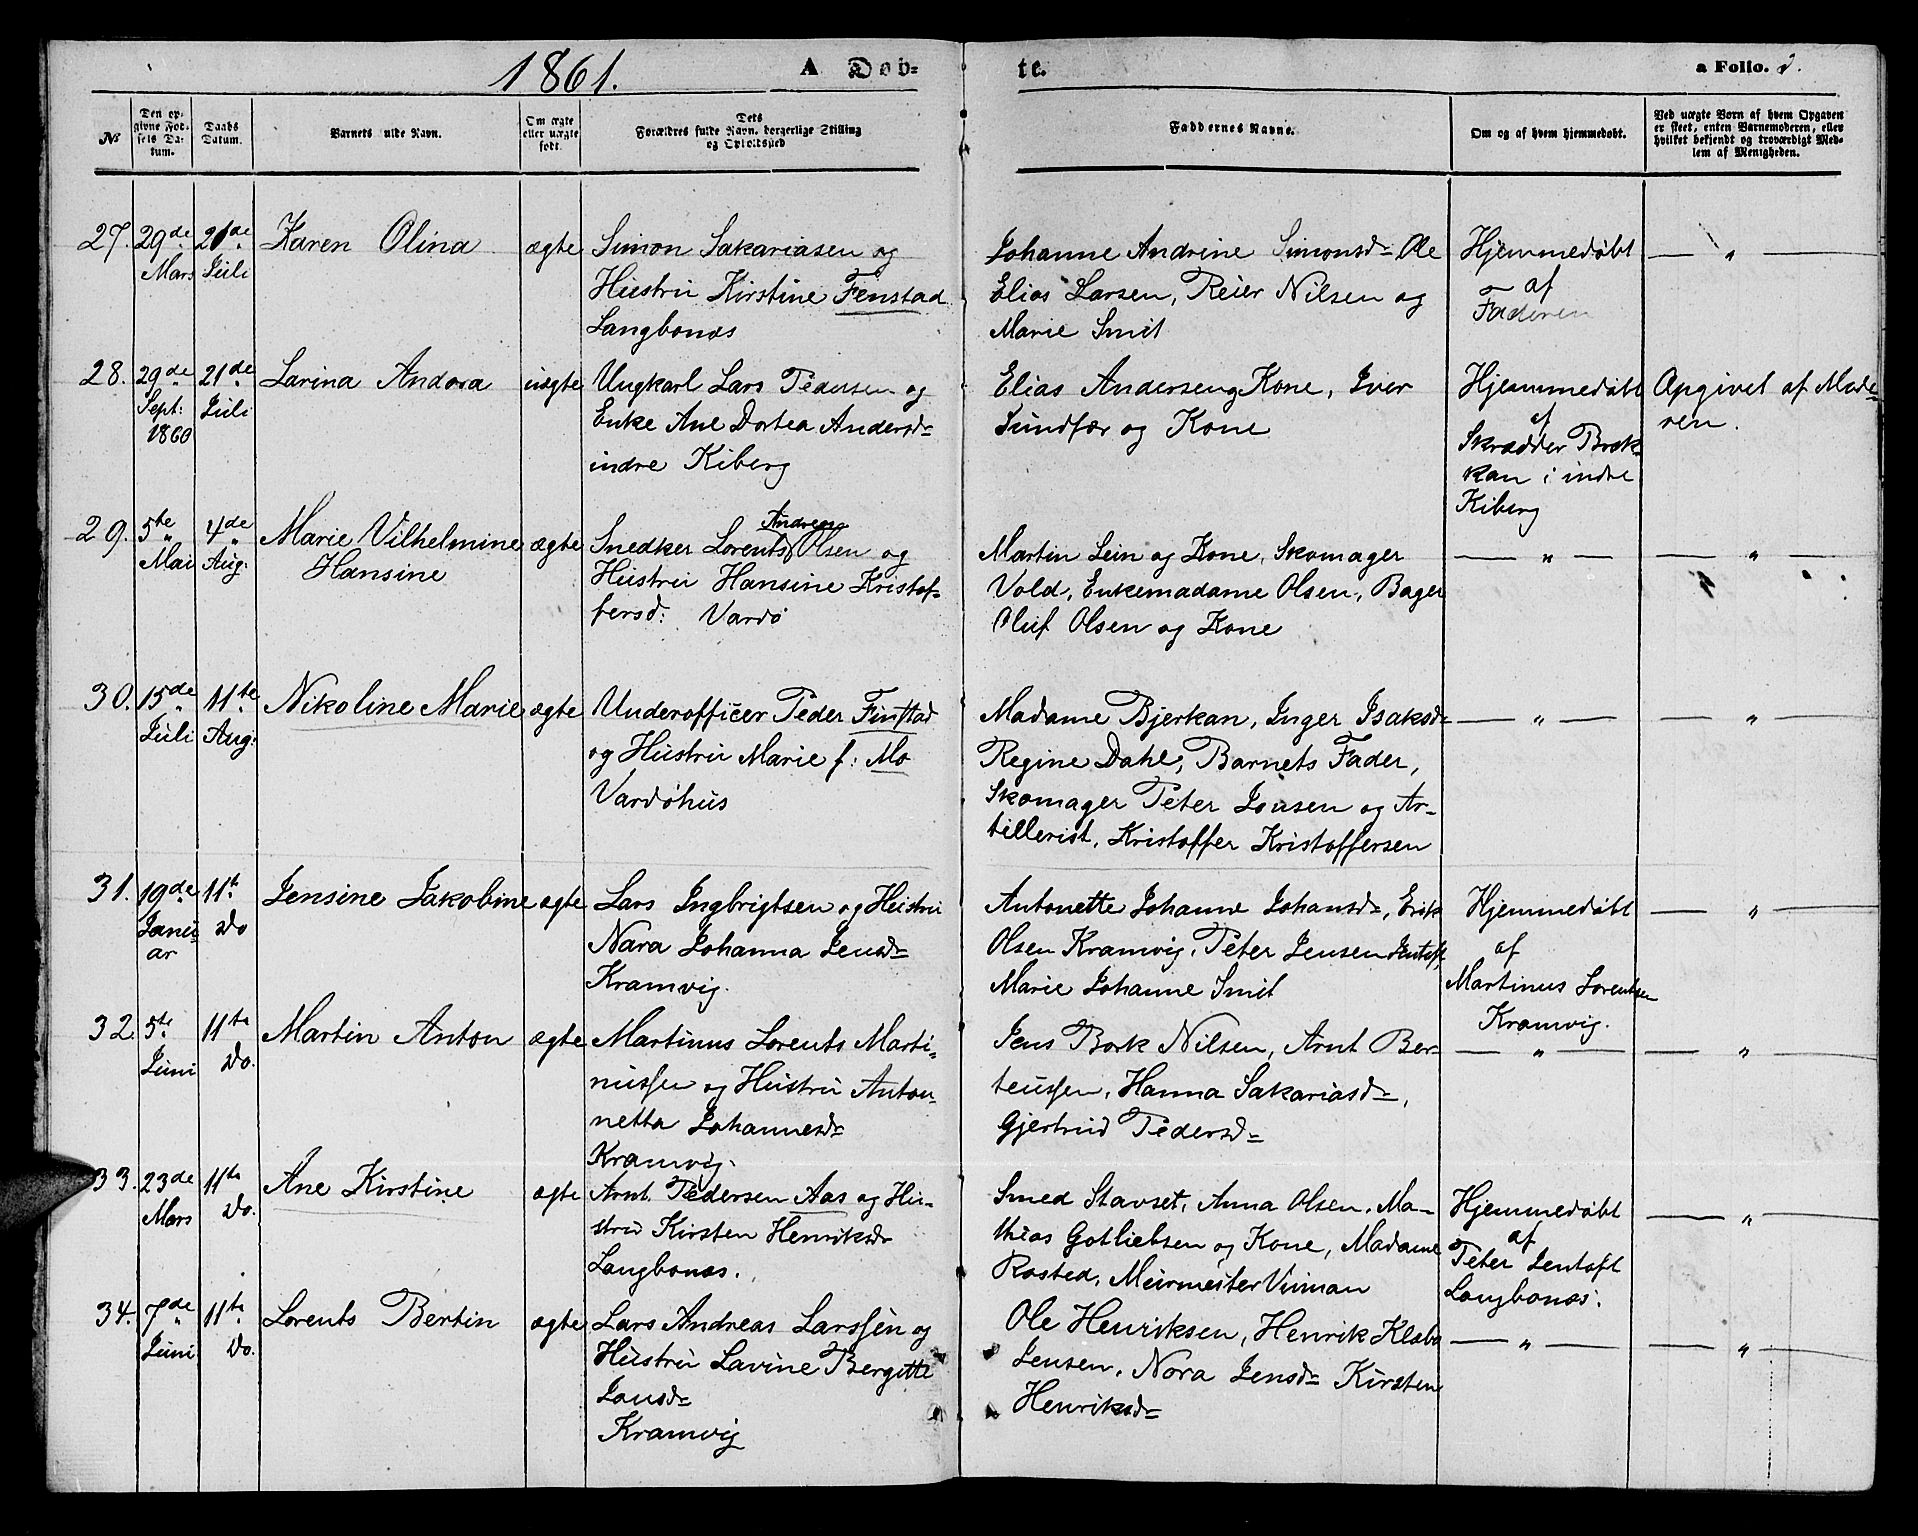 1861. A Døb= te. a Folio. 2.
No
Den op-
givne Fød-
sels Da-
tum.
Daabs
Datum.
Barnets fulde Navn.
Om ægte
eller uægte
født.
Dets
Forældres fulde Navn, borgerlige Stilling
og Opholdssted
Faddernes Navne.
Om og af hvem hjemmedøbt.
Ved uægte Børn af hvem Opgaven
er skeet, enten Barnemoderen, eller
hvilket bekjendt og troværdigt Med-
lem af Menigheden.
27. 29de Mars
21de Juli
Karen Olina
ægte
Simon Sakariasen og
Hustru Kirstine Fenstad
Langbonæs
Johanne Andrine Simonsd= Ole
Elias Larsen, Reier Nilsen og
Marie Smit
Hjemmedøbt
af
Faderen
— " —
28. 29de Sept: 1860
21de Juli
Larina Andora
uægte
Ungkarl Lars Pedersen og
Enke Ane Dortea Andersd=
indre Kiberg
Elias Andersen og Kone, Iver
Sundfær og Kone
Hjemmedøbt
af
Skrædder Bræk-
kan i indre
Kiberg
Opgivet af Mode-
ren.
29. 5te Mai
4de Aug:
Marie Vilhelmine
Hansine
ægte
Snedker Lorents Andreas Olsen og
Hustru Hansine Kristof-
fersd: Vardø
Martin Lein og Kone, Skomager
Vold, Enkemadame Olsen, Bager
Oluf Olsen og Kone
— " —
— " —
30. 15de Juli
11te Aug:
Nikoline Marie
ægte
Underofficer Peder Finstad
og Hustru Marie f: Mo
Vardøhus
Madame Bjerkan, Inger Isaksd=
Regine Dahl, Barnets Fader,
Skomager Peter Jonsen og Ar-
tillerist, Kristoffer Kristoffersen
— " —
— " —
31. 19de Janu-
ar
11te Do
Jensine Jakobine
ægte
Lars Ingbrigtsen og Hustru
Nara Johanna Jensd=
Kramvig.
Antonette Johanne Johansd=, Erik
Olsen Kramvig, Peter Jensen Jentoft,
Marie Johanne Smit
Hjemmedøbt
af
Martinus Lorentsen
Kramvig.
— " —
32. 5te Juni
11te Do.
Martin Anton
ægte
Martinus Lorents Marti-
nussen og Hustru Anton-
netta Johannesd=
Kramvig.
Jens Bork Nilsen, Arnt Ber-
teussen, Hanna Sakariasd=,
Gjertrud Pedersd=
— " —
— " —
33. 23de Mars
11te Do.
Ane Kirstine
ægte
Arnt Pedersen Aas og Hu-
stru Kirsten Henriksd=
Langbonæs.
Smed Stavset, Anna Olsen, Ma-
thias Gotliebsen og Kone, Madame
Rosted, Muirmester Viiman
Hjemmedøbt
af
Peter Jentoft
Langbonæs.
— " —
34. 7de Juni
11te Do.
Lorents Bertin
ægte
Lars Andreas Larssen og
Hustru Lavine Bergitte
Jonsd=
Kramvig
Ole Henriksen, Henrik Klæbo
Jensen, Nora Jensd= Kirsten
Henriksd=
— " —
— " —